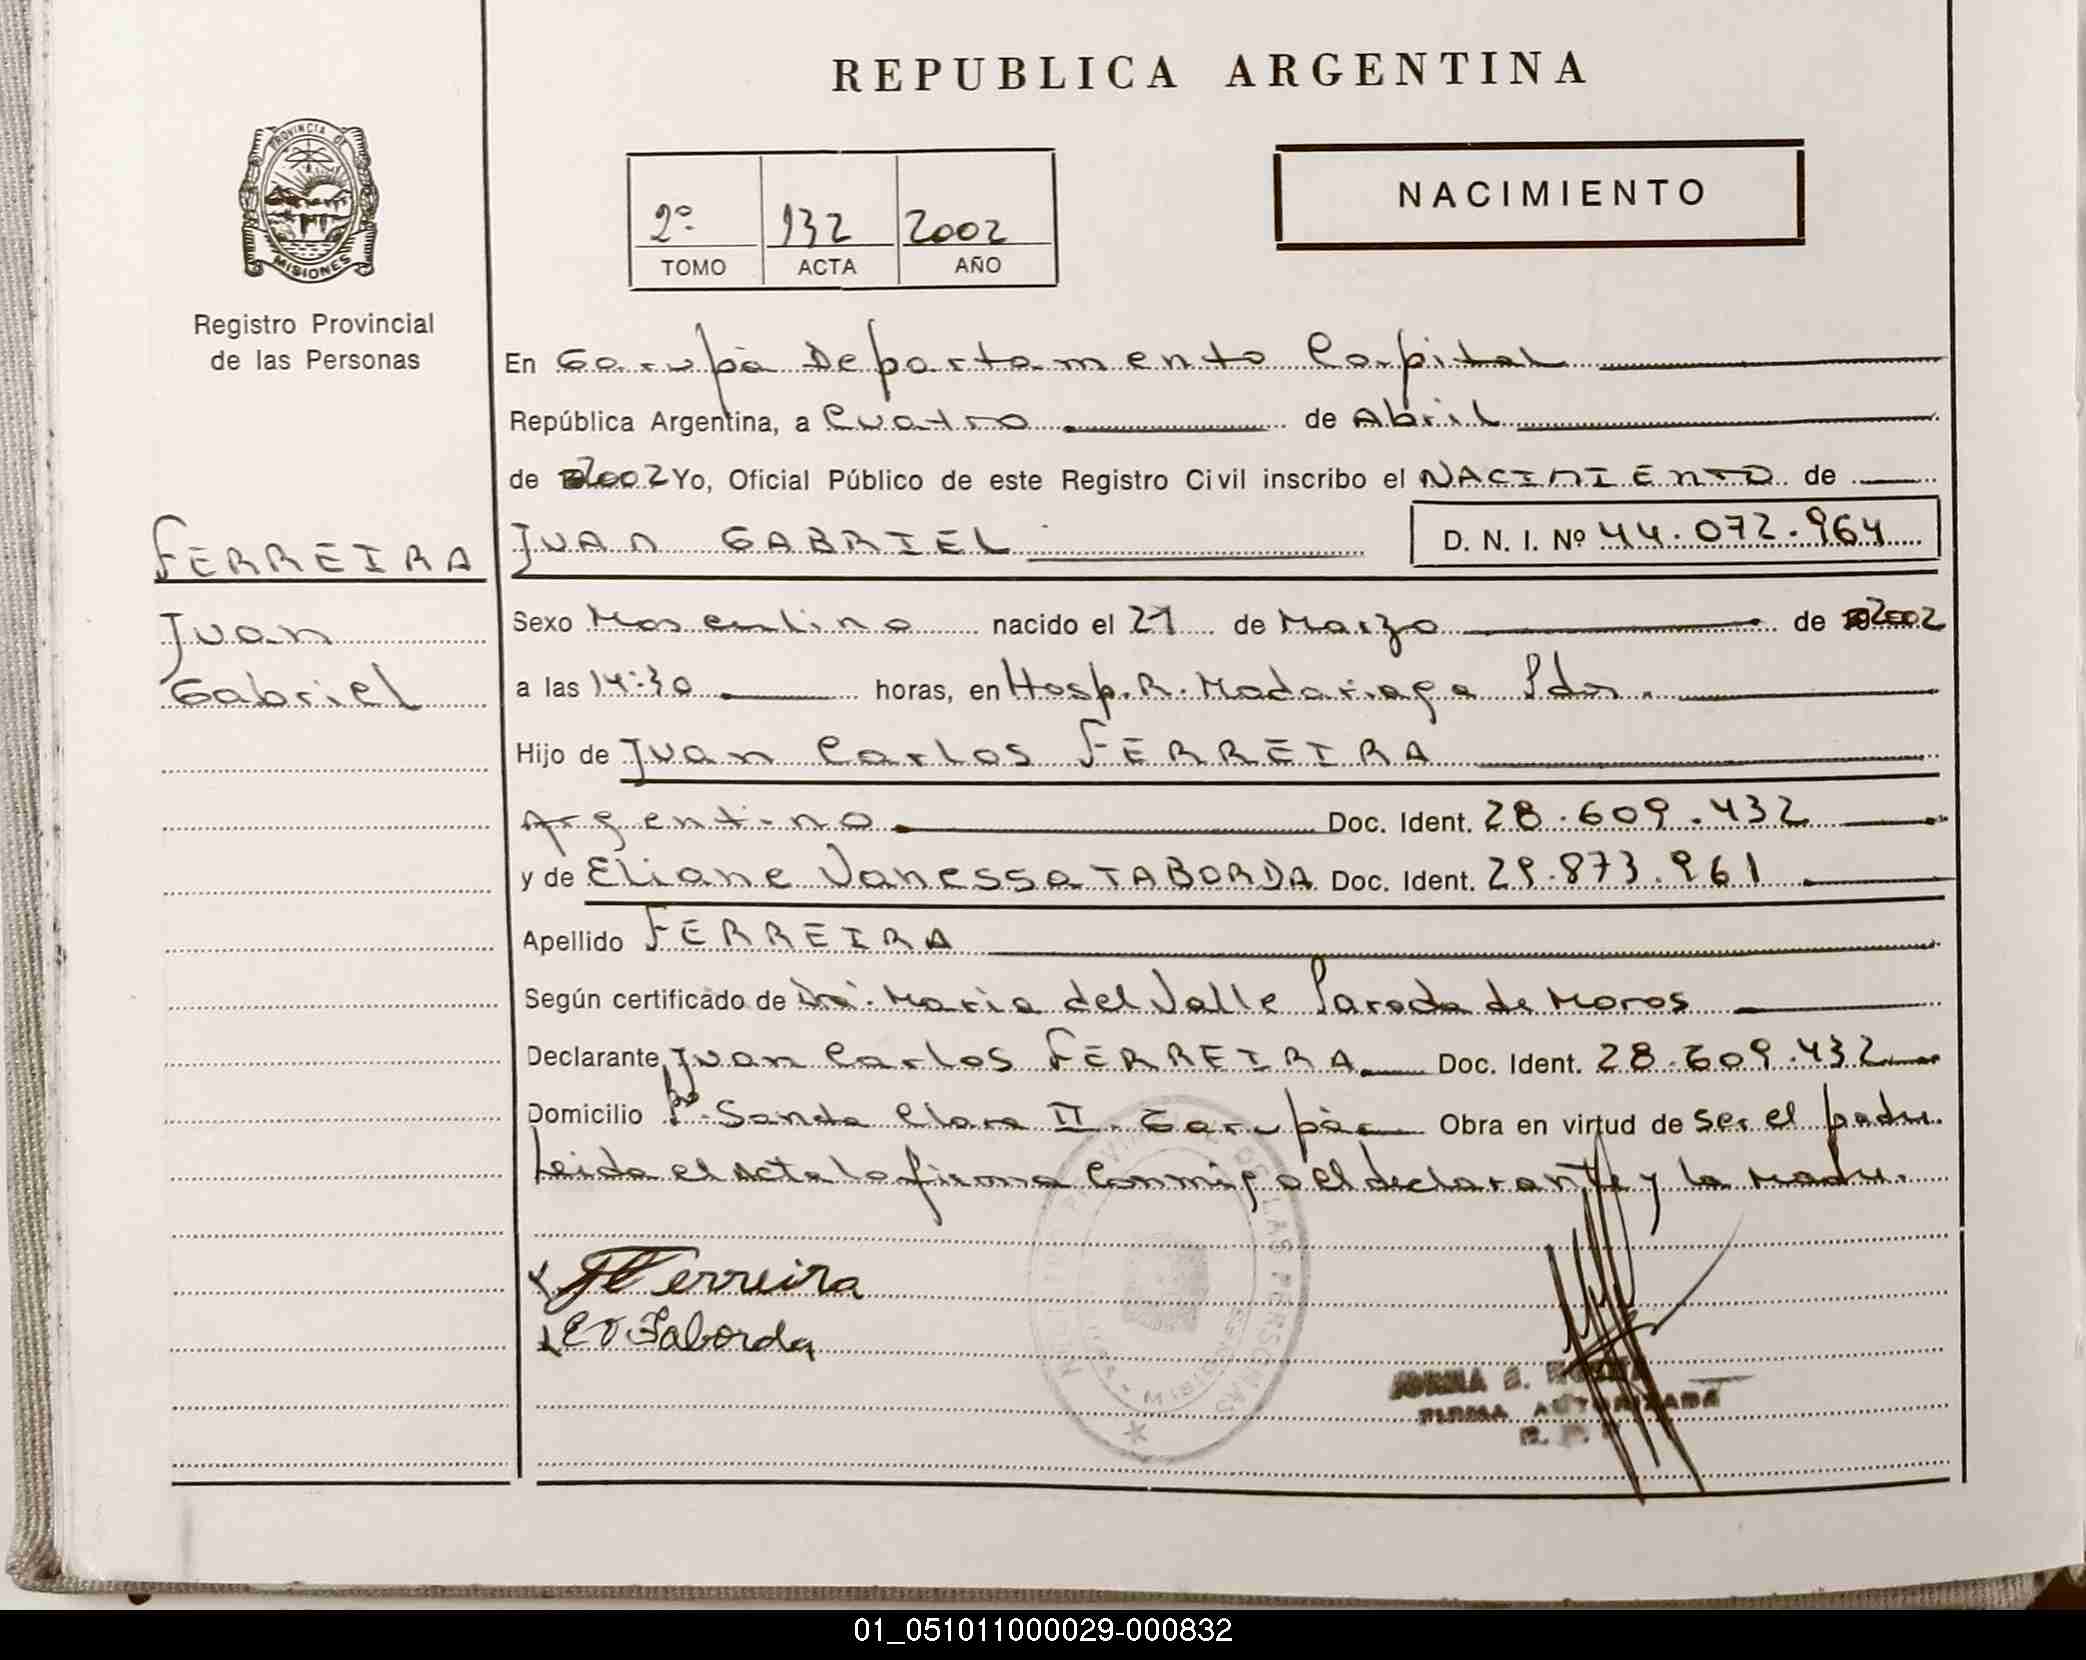 REPUBLICA ARGENTINA
PROVINCIA DE
MISIONES
Registro Provincial
de las Personas
2º 132 2002
TOMO ACTA AÑO
NACIMIENTO
En Garupá Departamento Capital
República Argentina, a Cuatro de Abril
de 2002 Yo, Oficial Público de este Registro Civil inscribo el NACIMIENTO de
FERREIRA
Juan
Gabriel
JUAN GABRIEL D. N. I. Nº 44.072.964
Sexo Masculino nacido el 21 de Marzo de 2002
a las 14:30 horas, en Hosp. R. Madariaga Pdas.
Hijo de Juan Carlos FERREIRA
Argentino Doc. Ident. 28.609.432
y de Eliane Vanessa TABORDA Doc. Ident. 29.873.961
Apellido FERREIRA
Según certificado de Dra. Maria del Valle Parada de Moros
Declarante Juan Carlos FERREIRA Doc. Ident. 28.609.432
Domicilio Bº Santa Clara II Garupá Obra en virtud de ser el padre.
Leida el Acta la firma Conmigo el declarante y la Madre.
Ferreira
EV Taborda
DE LAS PERSONAS
MISIONES
FIRMA AUTORIZADA
01_051011000029-000832